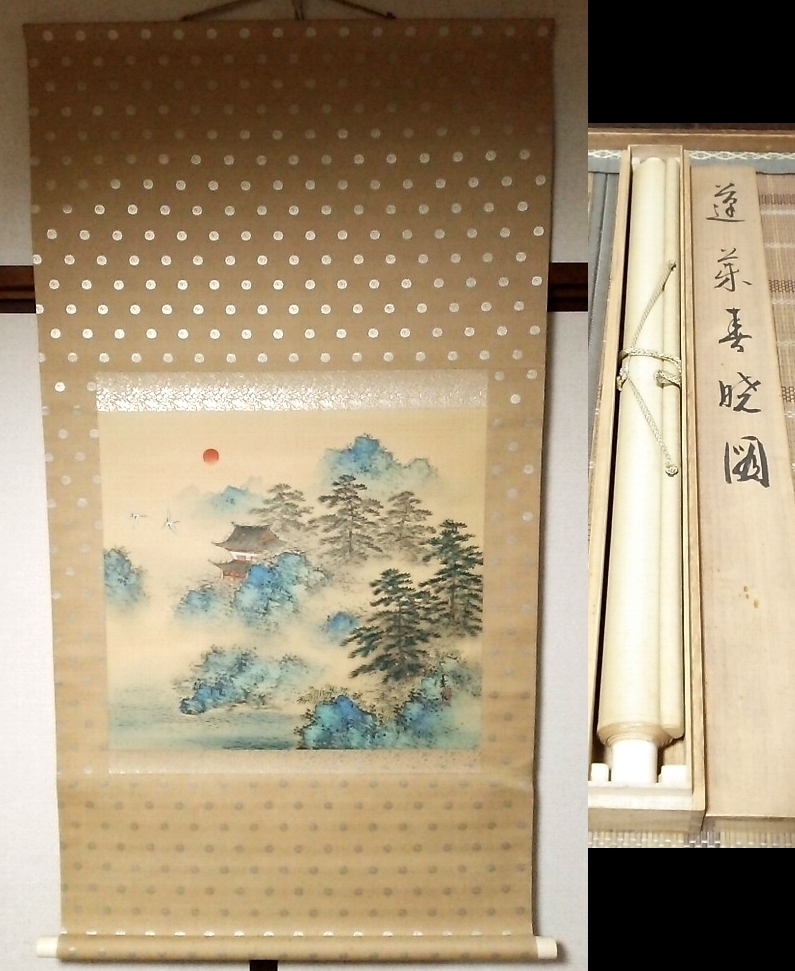 蓬莱春暁図